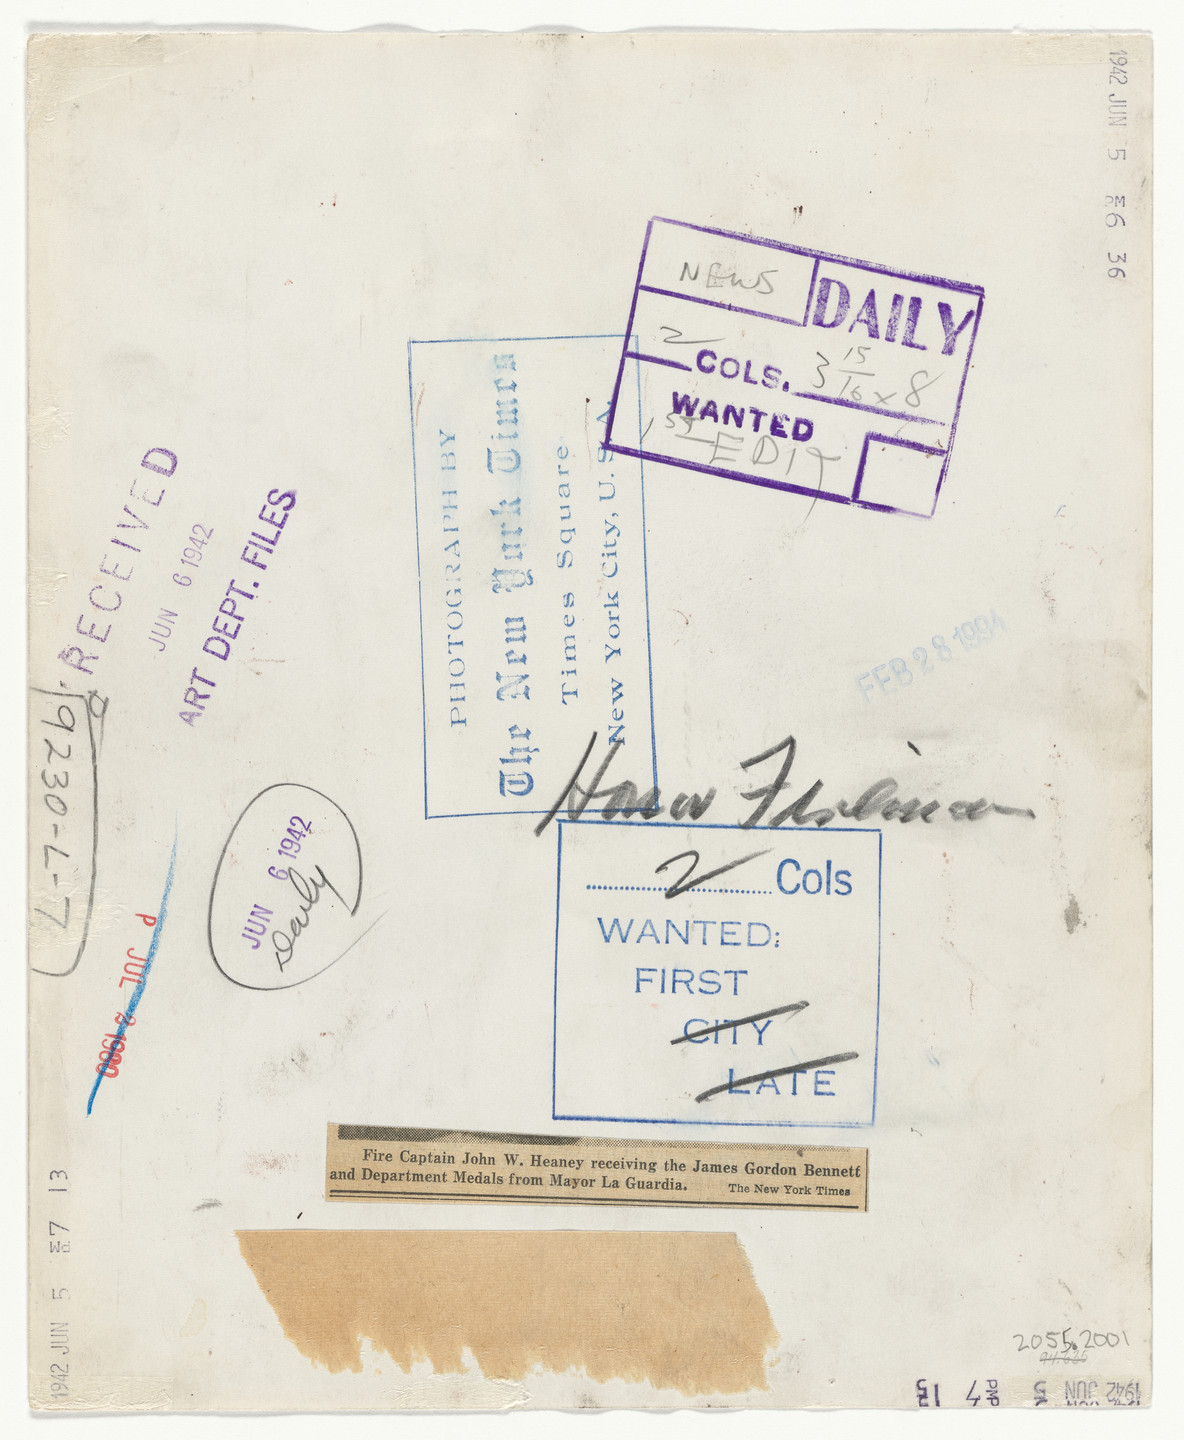 1942 JUN 5 PM 6 36
NEWS
DAILY
2 COLS. 3 15/16 x 8
WANTED
1ST EDIT
PHOTOGRAPH BY
The New York Times
Times Square
New York City, U.S.A.
RECEIVED
JUN 6 1942
ART DEPT. FILES
FEB 28 1994
9230-L-7
Honor
2 Cols
WANTED:
FIRST
CITY
LATE
JUN 6 1942
Daily
JUL 2 1960
Fire Captain John W. Heaney receiving the James Gordon Bennett
and Department Medals from Mayor La Guardia. The New York Times
1942 JUN 5 PM 7 13
2055.2001
94.626
1942 JUN 5 PM 7 13